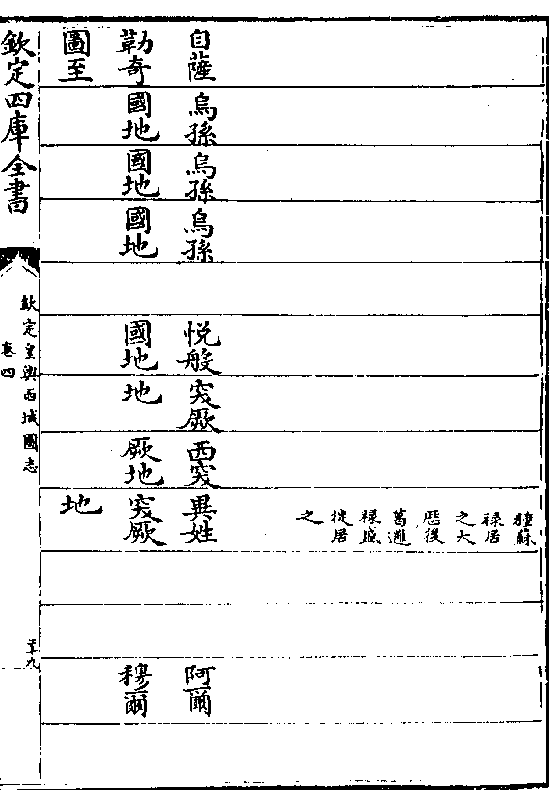 種蘇
祿居
之大
歷後
葛邏
祿盛
徙居
之
自薩
勒奇
圖至
烏孫
國地
烏孫
國地
烏孫
國地
悅般
國地
突厥
地
西突
厥地
異姓
突厥
地
阿爾
穆爾
欽定四庫全書
欽定皇輿西域圖志
卷四